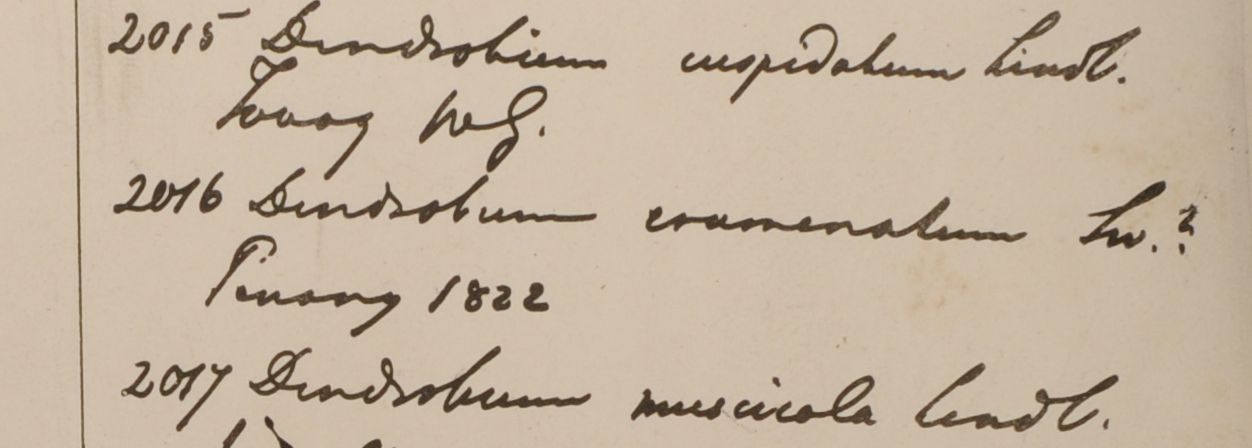 2015 Dendrobium cuspidatum Lindl.
Tavoy W.G.
2016 Dendrobium crumenatum Sw.?
Pinang 1822
2017 Dendrobium muscicola Lindl.